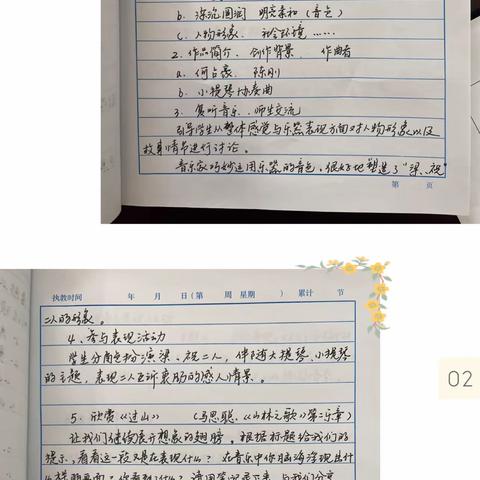 b. 深沉圆润 明亮柔和（音色）
c. 人物形象、社会环境……
2. 作品简介、创作背景、作曲者
a. 何占豪、陈刚
b. 小提琴协奏曲
3. 复听音乐、师生交流
引导学生从整体感觉与乐器表现方面对人物形象以及
故事情节进行讨论。
音乐家巧妙运用乐器的音色，很好地塑造了“梁、祝”
第 页
执教时间 年 月 日（第 周 星期 ） 累计 节
二人的形象。
4、参与表现活动
学生分角色扮演梁、祝二人，伴随大提琴、小提琴
的主题，表现二人互诉衷肠的感人情景。
5、欣赏《过山》 （马思聪、《山林之歌》第二乐章）
让我们继续展开想象的翅膀，根据标题给我们的
提示，看看这一段又是在表现什么？在音乐中你脑海浮现出什
02